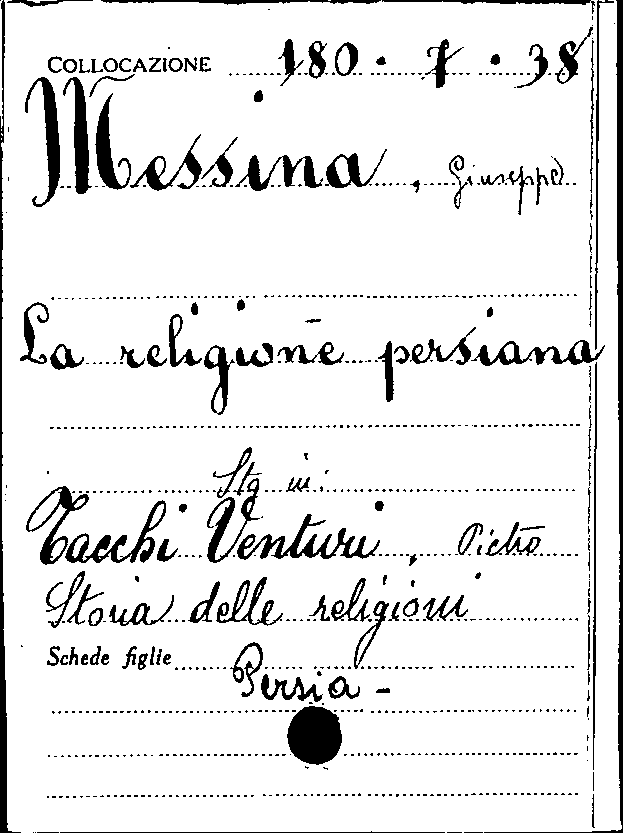 COLLOCAZIONE 180 · 7 · 38
Messina, Giuseppe
La religione persiana
Stg in:
Tacchi Venturi, Pietro
Storia delle religioni
Schede figlie
Persia -